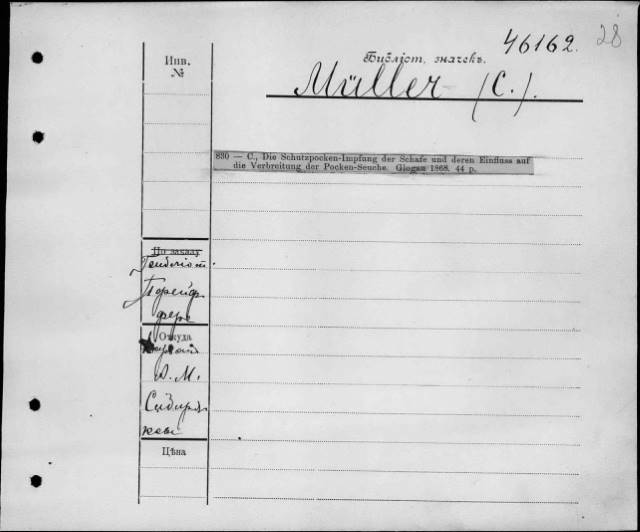 46162. 28
Инв.
№
Библіот. значекъ.
Müller (C.).
830 — C., Die Schutzpocken-Impfung der Schafe und deren Einfluss auf
die Verbreitung der Pocken-Seuche. Glogau 1868. 44 p.
По заказу
Пфейф
фера
Откуда
А. М.
Сибиря
кова
Цѣна